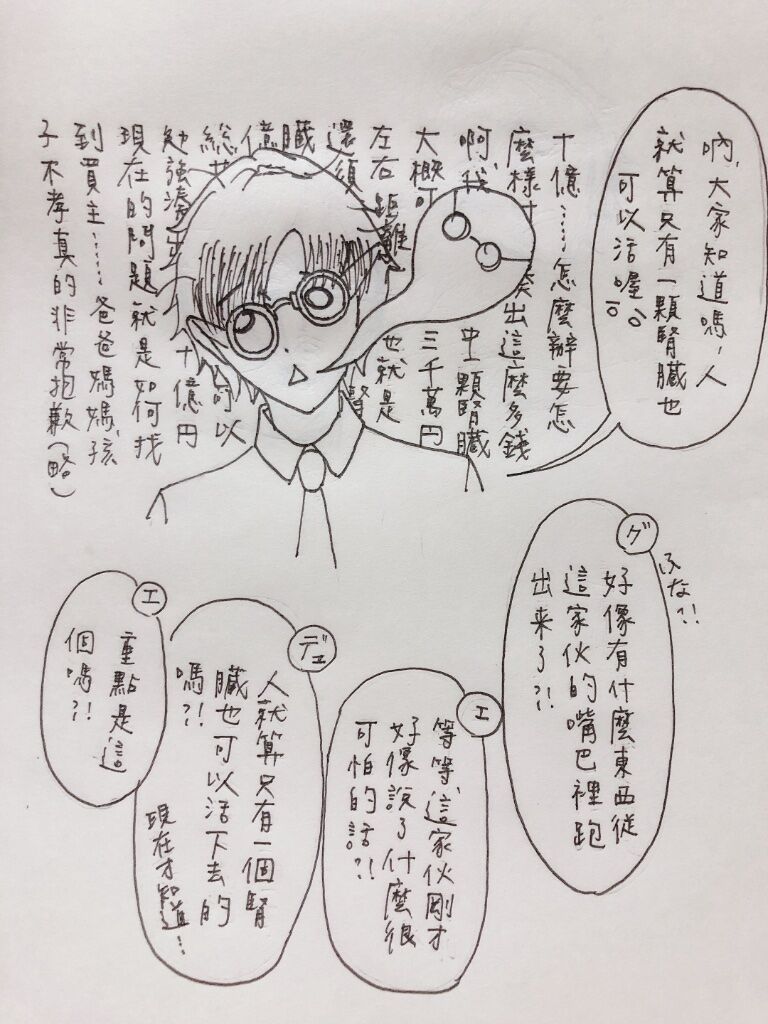 吶,大家知道嗎,人
就算只有一顆腎臟也
可以活喔
十億……怎麼辦要怎
麼樣
出這麼多錢
啊,我
中一顆腎臟
大概可
三千萬円
左右,距離
也就是
還須
腎
臟
億
総共
可以
勉強湊出
十億円
現在的問題就是如何找
到買主……爸爸媽媽,孩
子不孝真的非常抱歉(略)
グ
ふな?!
好像有什麼東西從
這家伙的嘴巴裡跑
出来了?!
エ
等等,這家伙剛才
好像說了什麼很
可怕的話?!
デュ
人就算只有一個腎
臟也可以活下去的
嗎?!
現在才知道…
エ
重點是這
個嗎?!